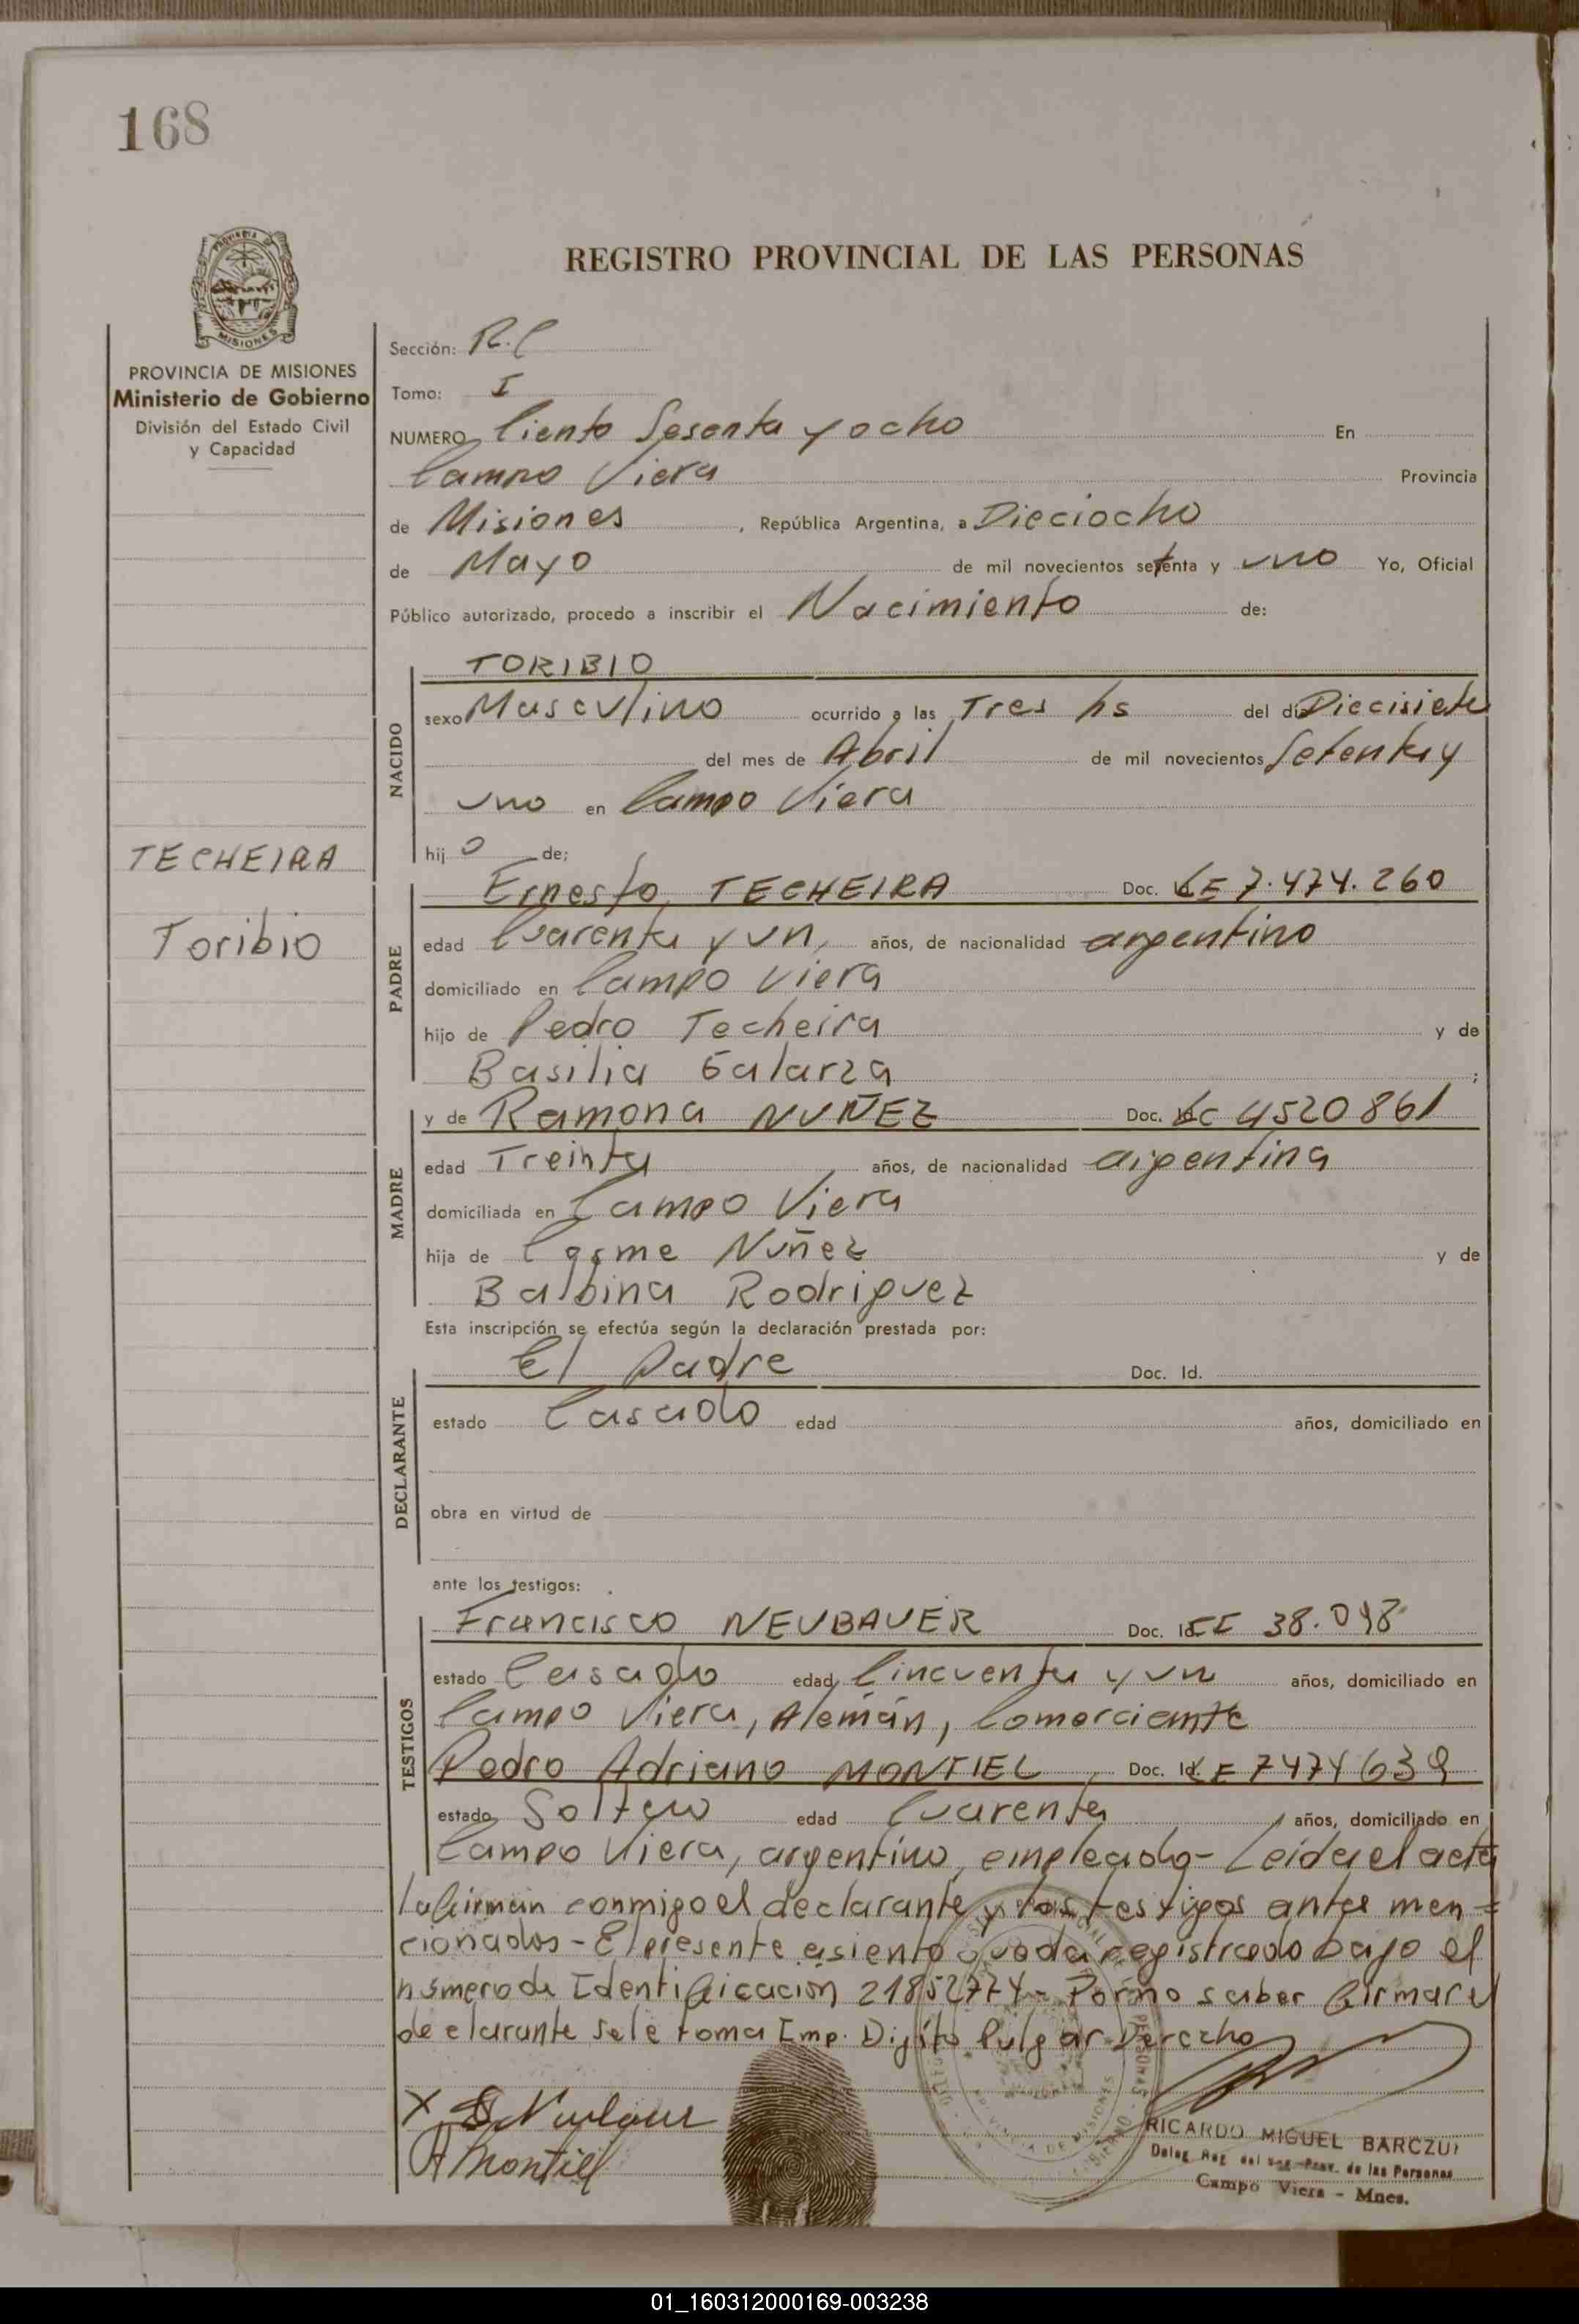 168
REGISTRO PROVINCIAL DE LAS PERSONAS
MISIONES
PROVINCIA DE MISIONES
Ministerio de Gobierno
División del Estado Civil
y Capacidad
TECHEIRA
Toribio
Sección: R.C
Tomo: I
NUMERO Ciento Sesenta y ocho En
Campo Viera Provincia
de Misiones, República Argentina, a Dieciocho
de Mayo de mil novecientos setenta y uno Yo, Oficial
Público autorizado, procedo a inscribir el Nacimiento de:
NACIDO
TORIBIO
sexo Masculino ocurrido a las Tres hs del día Diecisiete
del mes de Abril de mil novecientos Setenta y
uno en Campo Viera
hij o de;
PADRE
Ernesto TECHEIRA Doc. LE 7.474.260
edad Cuarenta y un, años, de nacionalidad argentino
domiciliado en Campo Viera
hijo de Pedro Techeira y de
Basilia Galarza ;
MADRE
y de Ramona NUÑEZ Doc. LC 4520861
edad Treinta años, de nacionalidad argentina
domiciliada en Campo Viera
hija de Cosme Nuñez y de
Balbina Rodriguez
Esta inscripción se efectúa según la declaración prestada por:
DECLARANTE
El Padre Doc. Id.
estado Casado edad años, domiciliado en
obra en virtud de
ante los testigos:
TESTIGOS
Francisco NEUBAUER Doc. Id. CI 38.098
estado Casado edad Cincuenta y un años, domiciliado en
Campo Viera, Alemán, Comerciante
Pedro Adriano MONTIEL, Doc. Id. LE 7474639
estado Soltero edad Cuarenta, años, domiciliado en
Campo Viera, argentino, empleado- Leida el acta
la firman conmigo el declarante y los testigos antes men=
cionados - El presente asiento queda registrado bajo el
número de Identificación 21852774 - Por no saber firmar el
declarante se le toma Imp. Digito Pulgar Derecho
X
A Montiel
RICARDO MIGUEL BARCZUI
Deleg. Reg. del Reg. Prov. de las Personas
Campo Viera - Mnes.
01_160312000169-003238